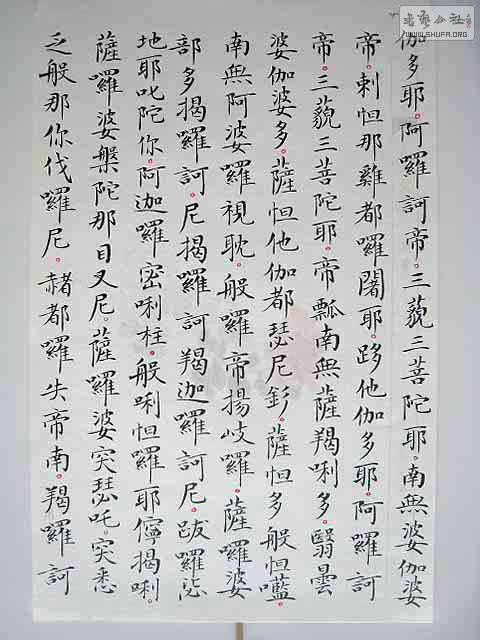 伽多耶。阿囉訶帝。三藐三菩陀耶。南無婆伽婆
帝。剌怛那雞都囉闍耶。跢他伽多耶。阿囉訶
帝。三藐三菩陀耶。帝瓢南無薩羯唎多。翳曇
婆伽婆多。薩怛他伽都瑟尼釤。薩怛多般怛囕。
南無阿婆囉視耽。般囉帝揚岐囉。薩囉婆
部多揭囉訶。尼揭囉訶羯迦囉訶尼。跋囉毖
地耶叱陀你。阿迦囉密唎柱。般唎怛囉耶儜揭唎。
薩囉婆槃陀那目叉尼。薩囉婆突瑟吒。突悉
乏般那你伐囉尼。赭都囉失帝南。羯囉訶
WWW.SHUFA.ORG